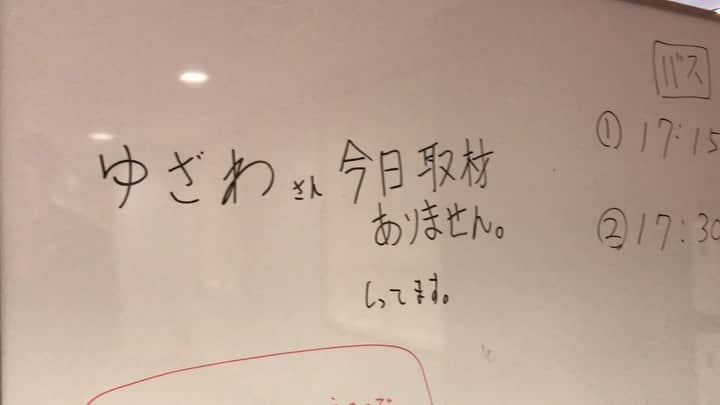 ゆざわさん今日取材
ありません。
しってます。
バス
①17:15
②17:30